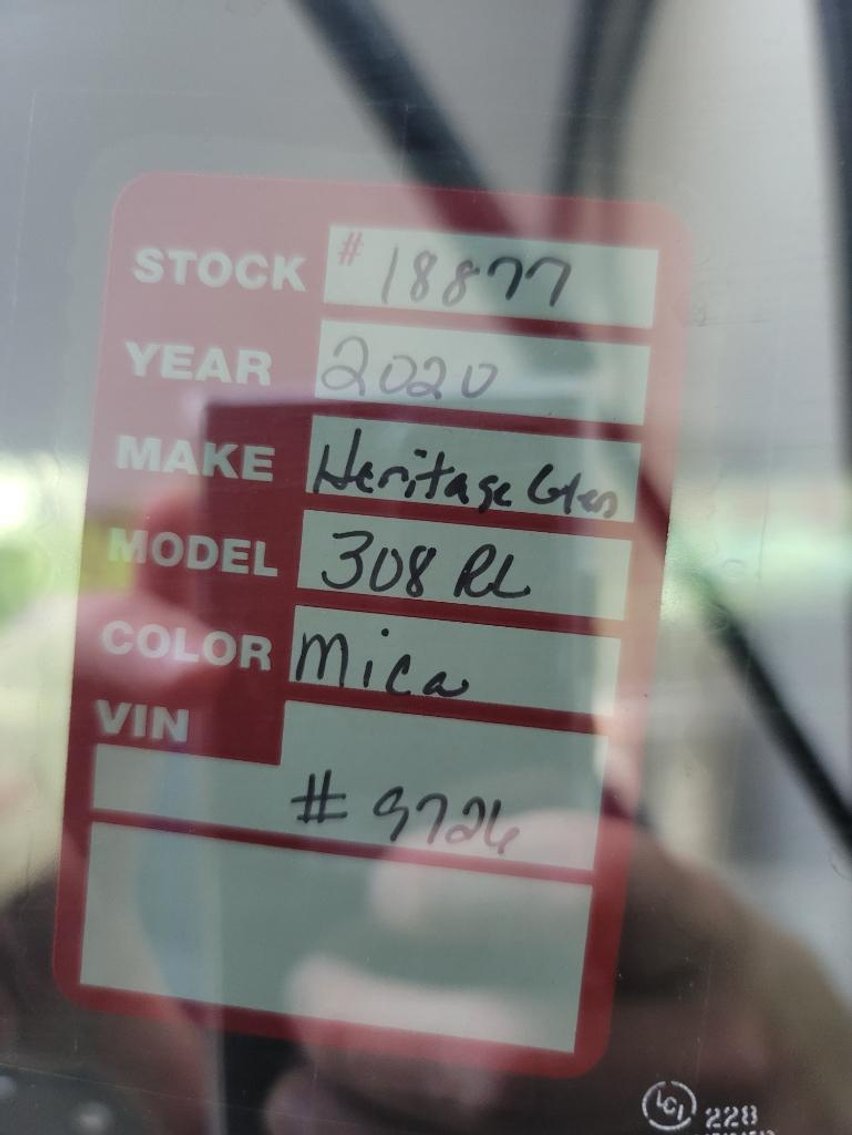 STOCK # 18877
YEAR 2020
MAKE Heritage Glen
MODEL 308 RL
COLOR Mica
VIN
# 9726
LCI 228